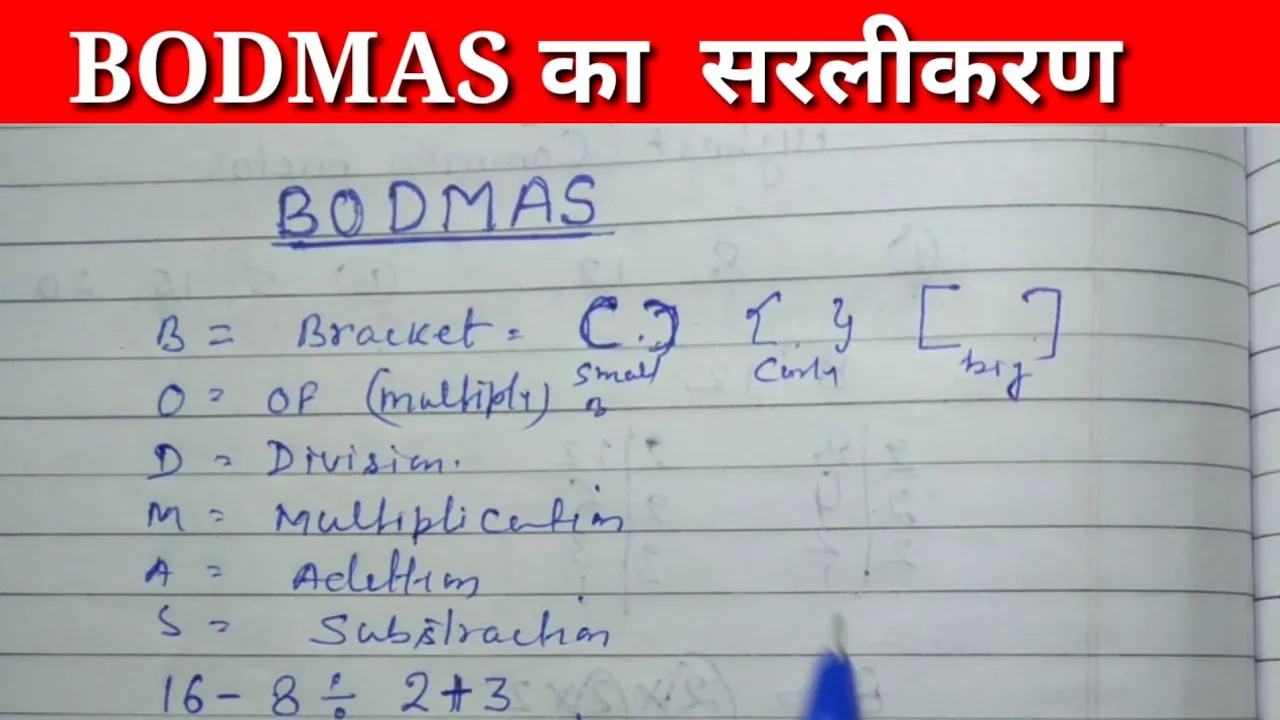 BODMAS का सरलीकरण
BODMAS
B = Bracket = ( . ) { . } [ ]
small curly big
O = OF (multiply)
D = Division.
M = Multiplication
A = Addition
S = Substraction
16 - 8 ÷ 2 + 3